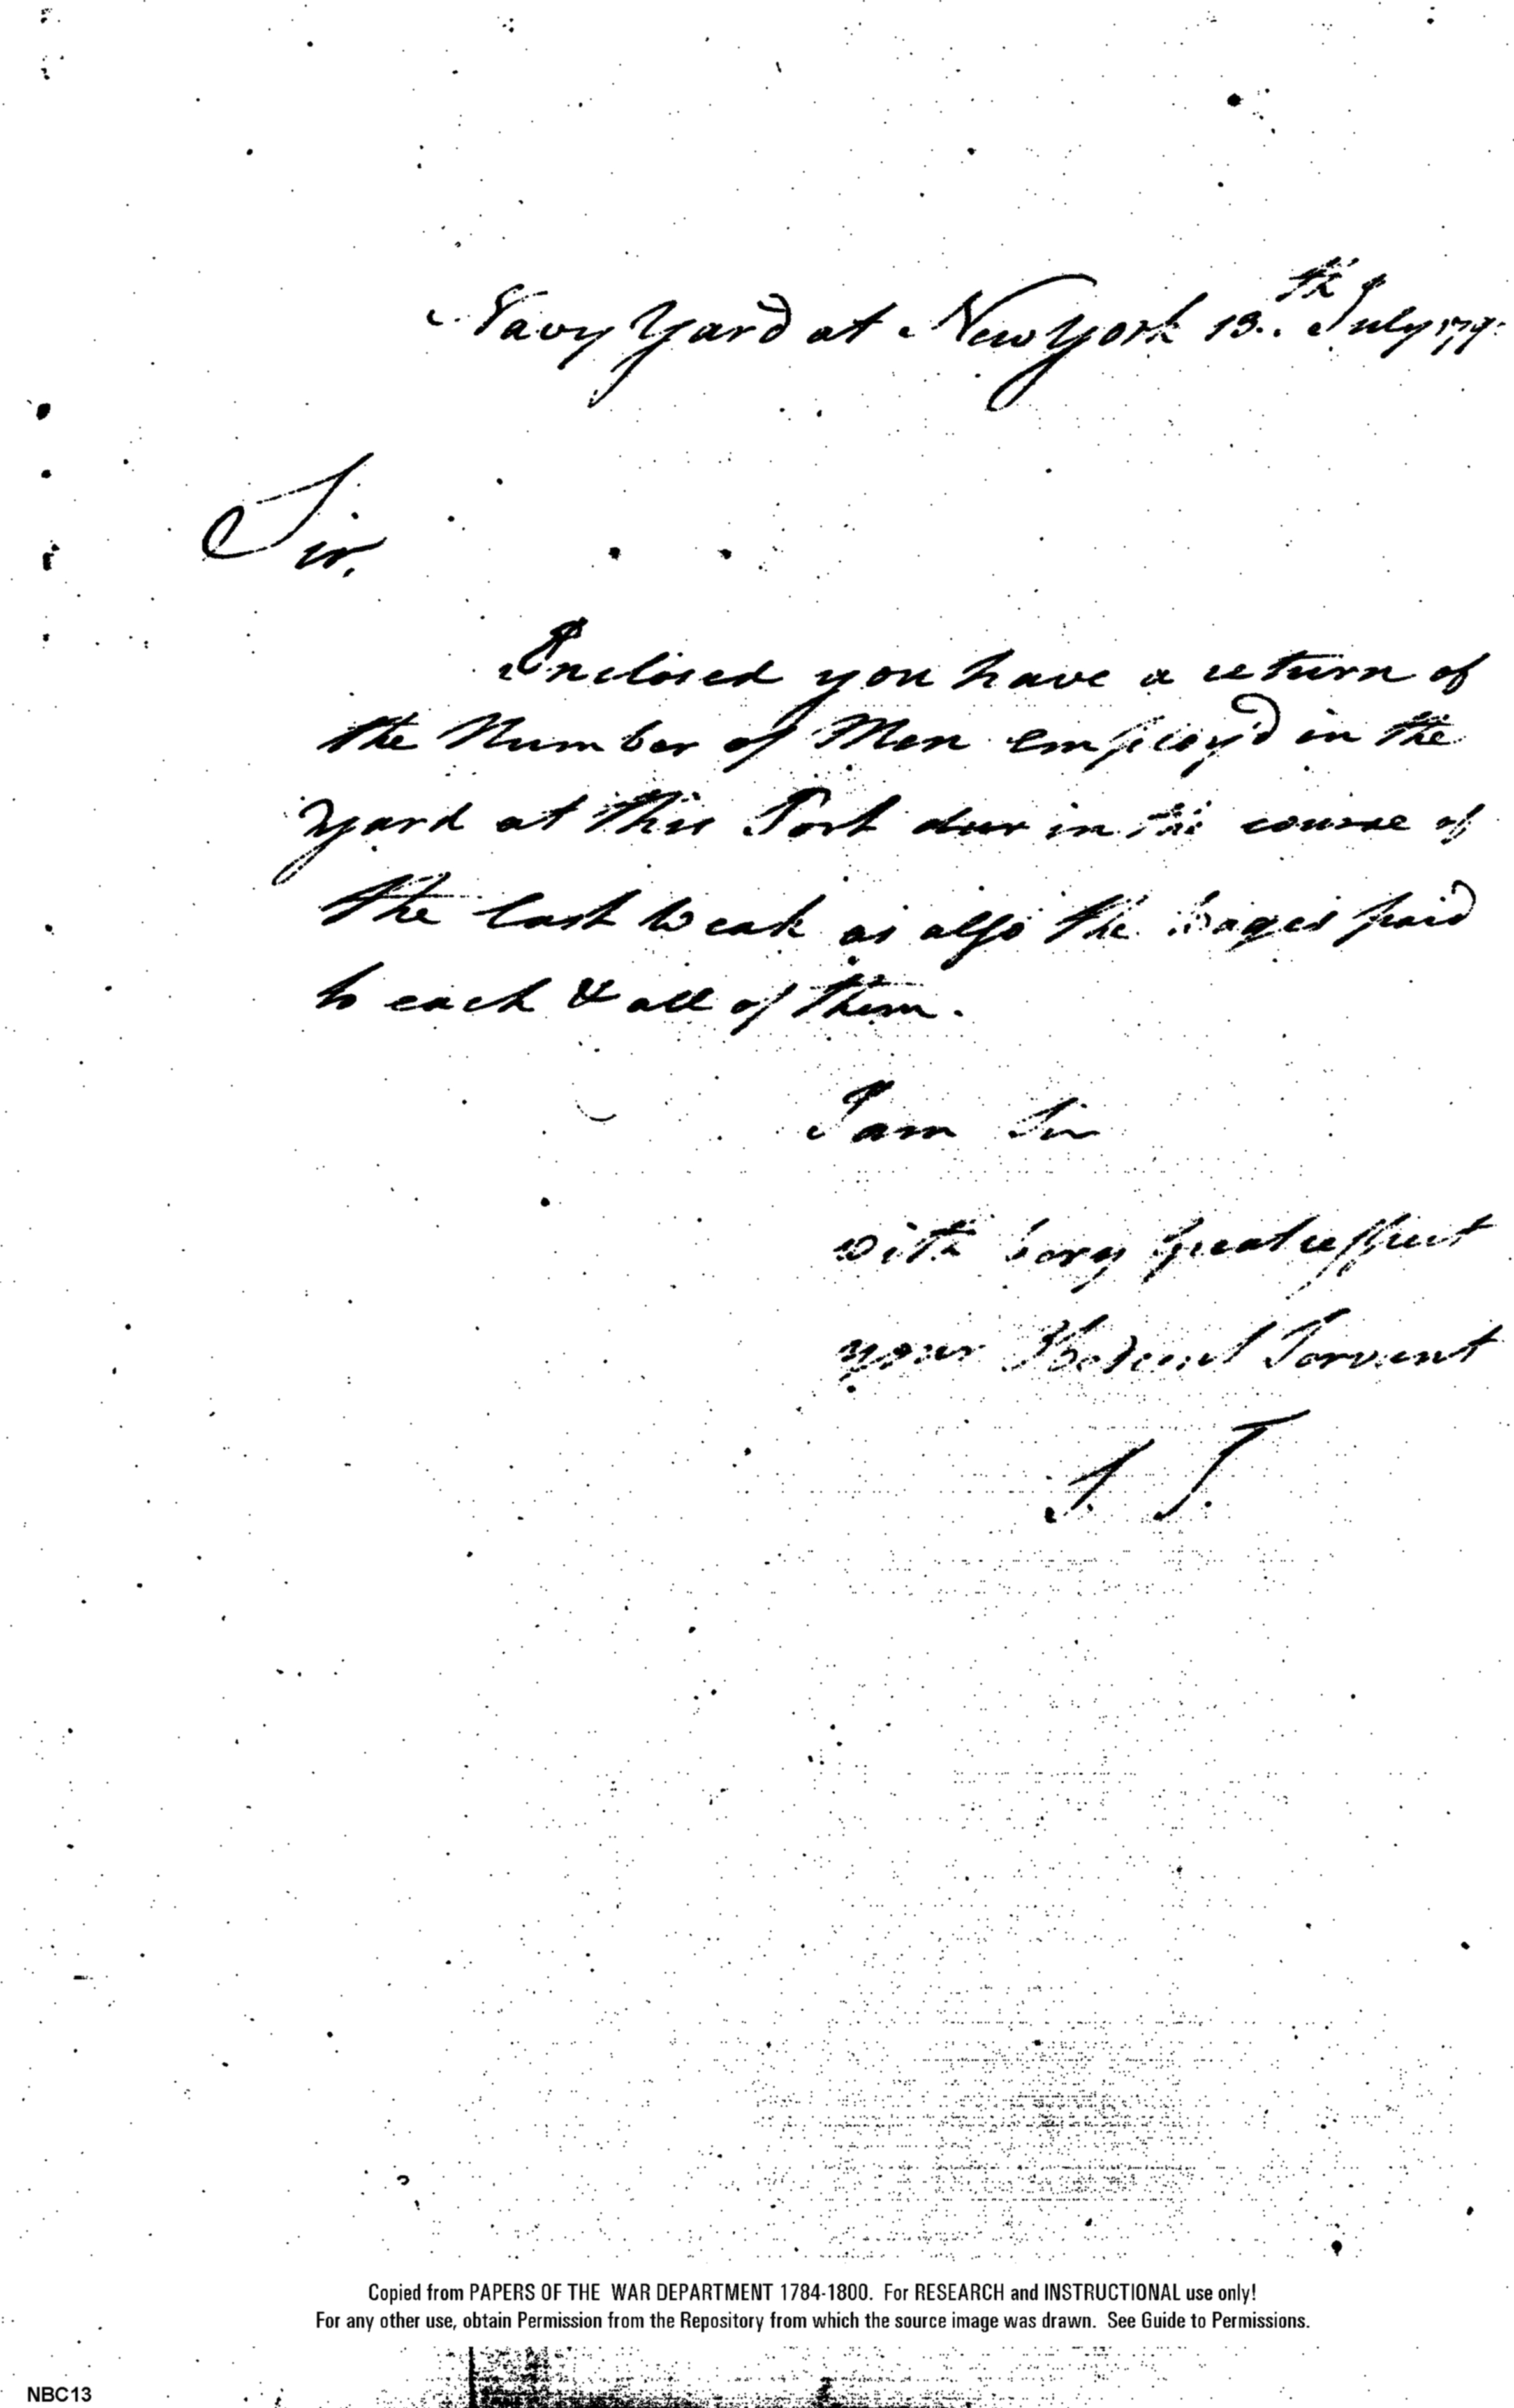 Navy Yard at New York 13.th July 179
Sir,
Enclosed you have a return of
the Number of Men employ'd in the
Yard at this Port dur in the course of
the last Weak as also the Wages paid
to each & all of them.
I am Sir
with very great respect
your Obedient Servant
J. T.
Copied from PAPERS OF THE WAR DEPARTMENT 1784-1800. For RESEARCH and INSTRUCTIONAL use only!
For any other use, obtain Permission from the Repository from which the source image was drawn. See Guide to Permissions.
NBC13